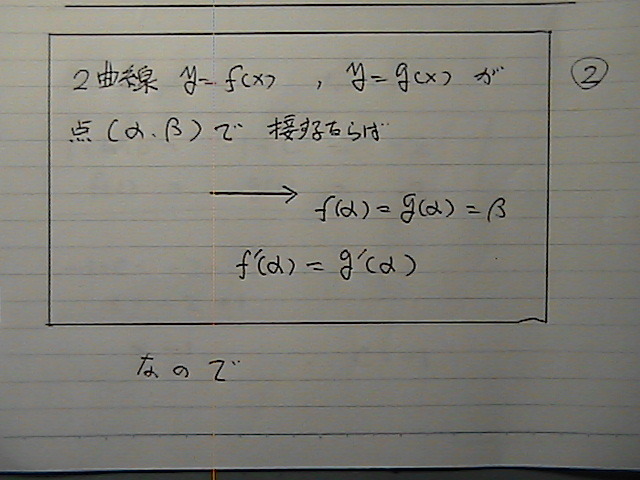 2曲線 y=f(x) , y=g(x) が
②
点(α.β)で 接するならば
→ f(α)=g(α)=β
f′(α)=g′(α)
なので